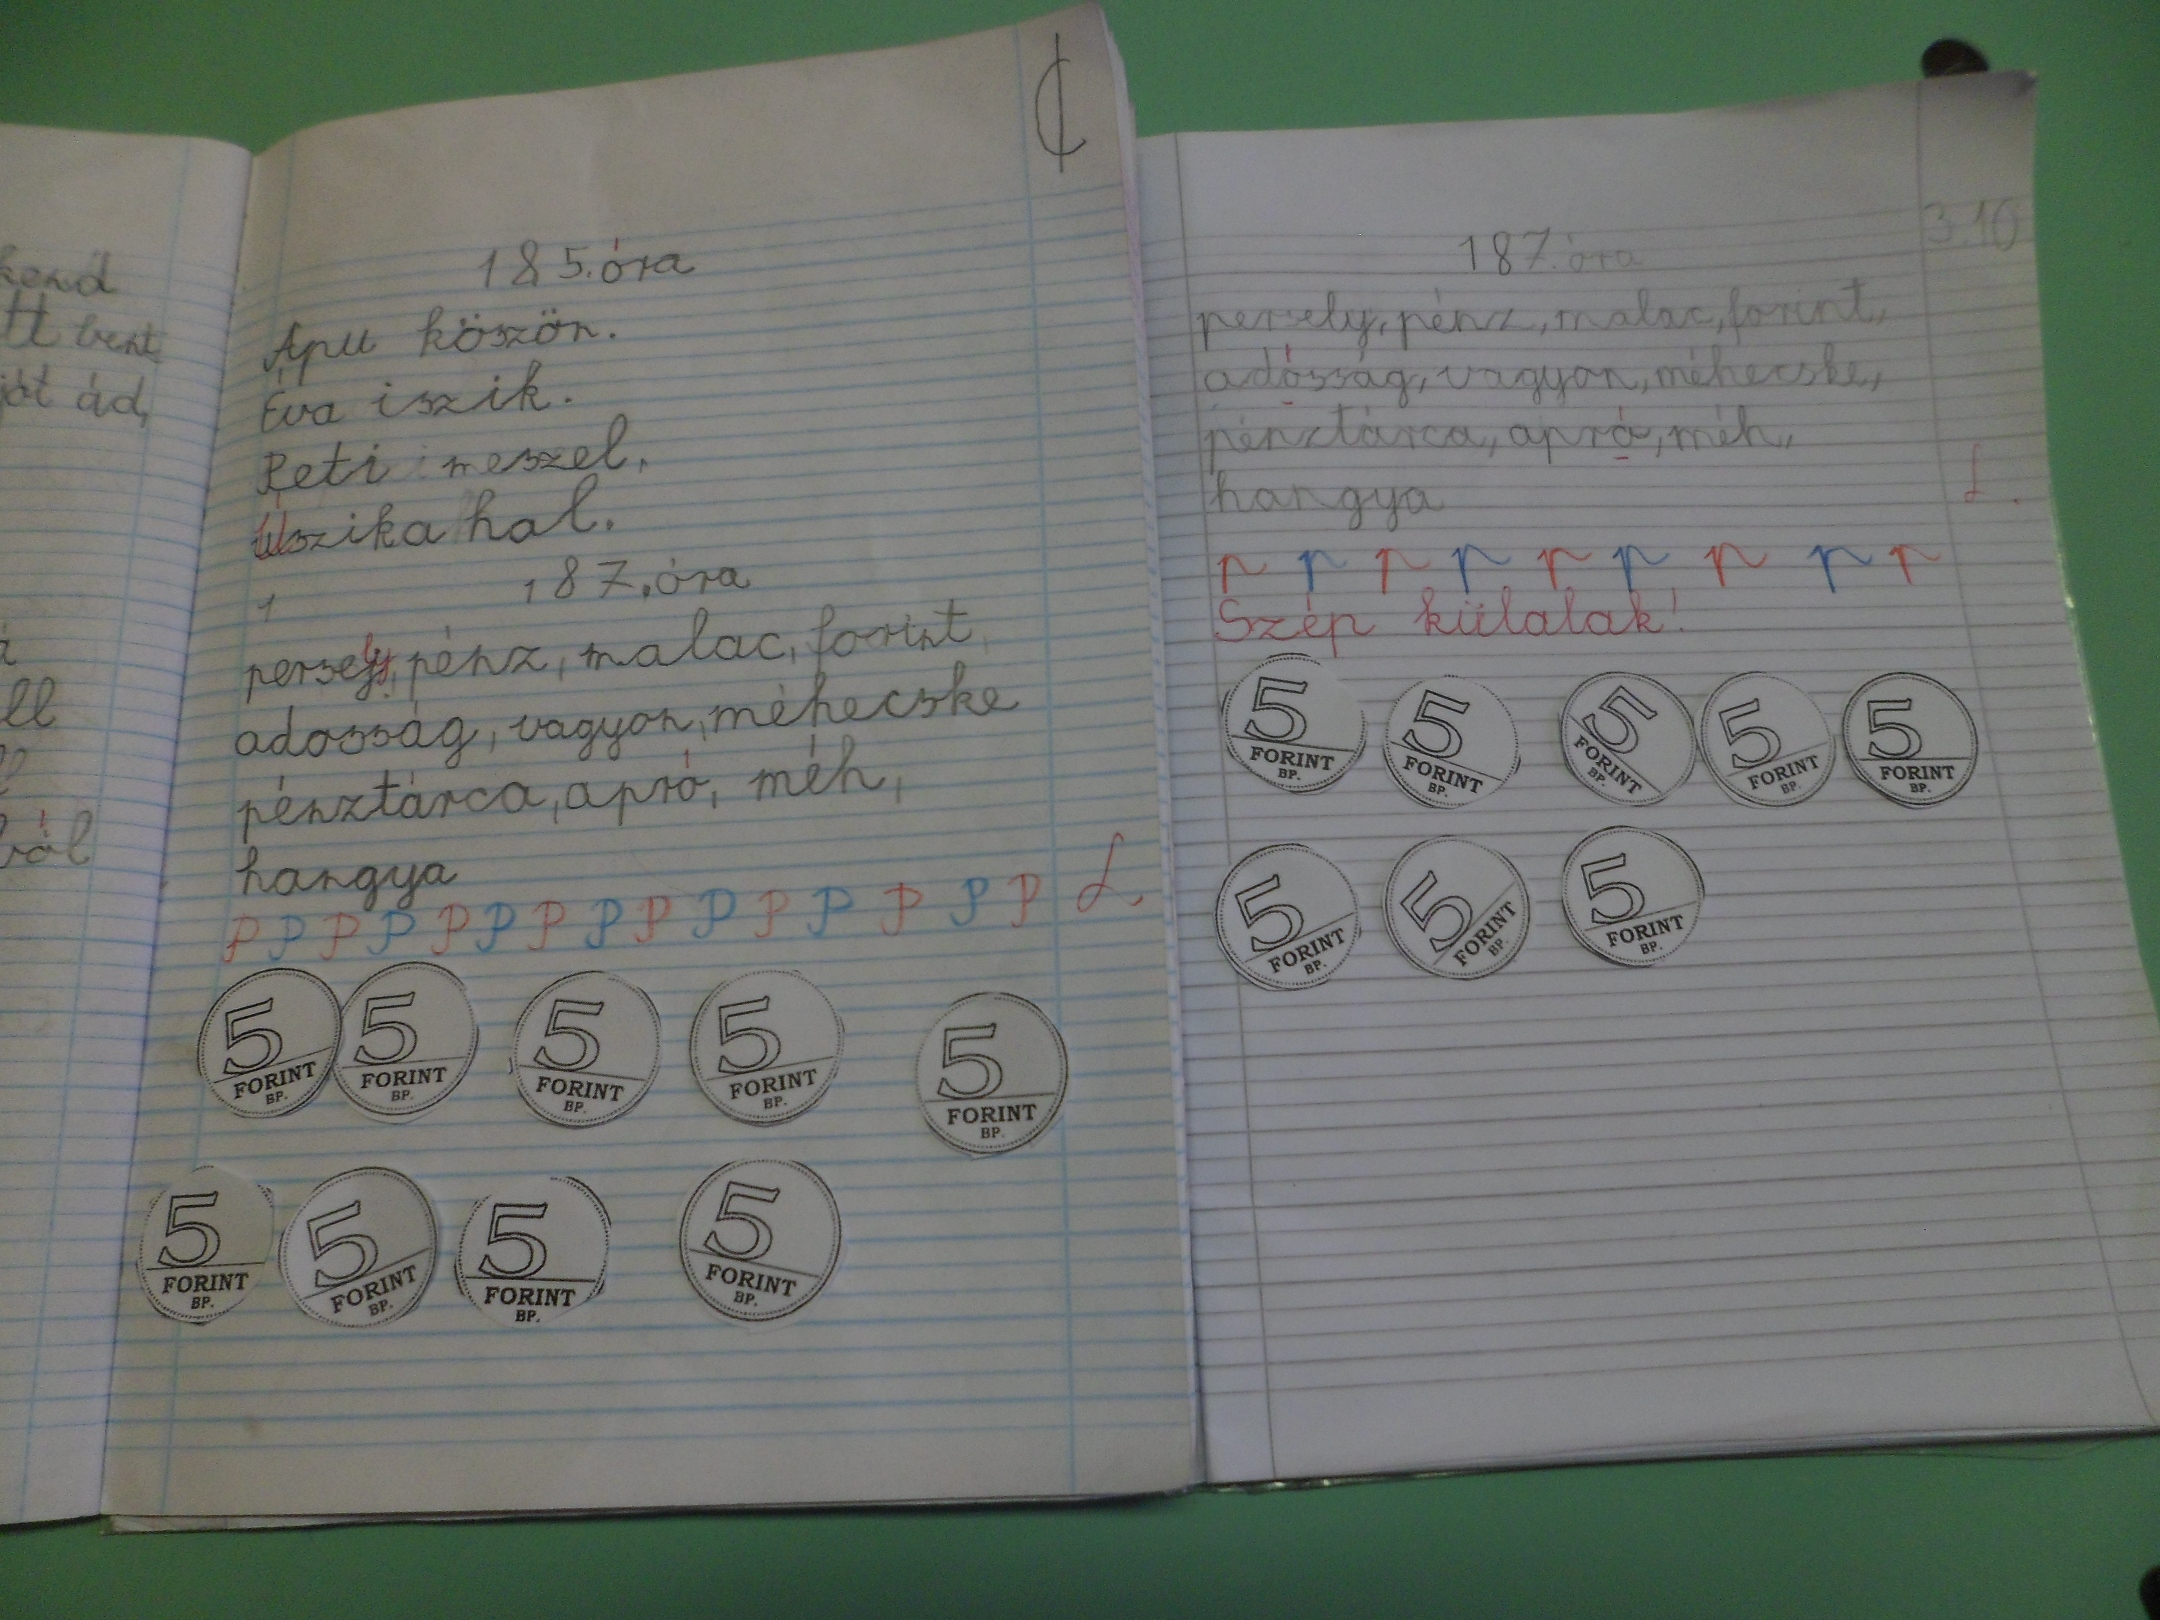 kend
tt bent
ját ád,
ll
ról
185. óra
Apu köszön.
Éva iszik.
Peti meszel.
Úszik a hal.
1 187. óra
persely, pénz, malac, forint,
adosság, vagyon, méhecske
pénztárca, apró, méh,
hangya
P P P P P P P P P P P P P P P L.
5 FORINT BP.
5 FORINT BP.
5 FORINT BP.
5 FORINT BP.
5 FORINT BP.
5 FORINT BP.
5 FORINT BP.
5 FORINT BP.
5 FORINT BP.
3.10
187. óra
persely, pénz, malac, forint,
adósság, vagyon, méhecske,
pénztárca, apró, méh,
hangya
L.
p p p p p p p p p
Szép külalak!
5 FORINT BP.
5 FORINT BP.
5 FORINT BP.
5 FORINT BP.
5 FORINT BP.
5 FORINT BP.
5 FORINT BP.
5 FORINT BP.